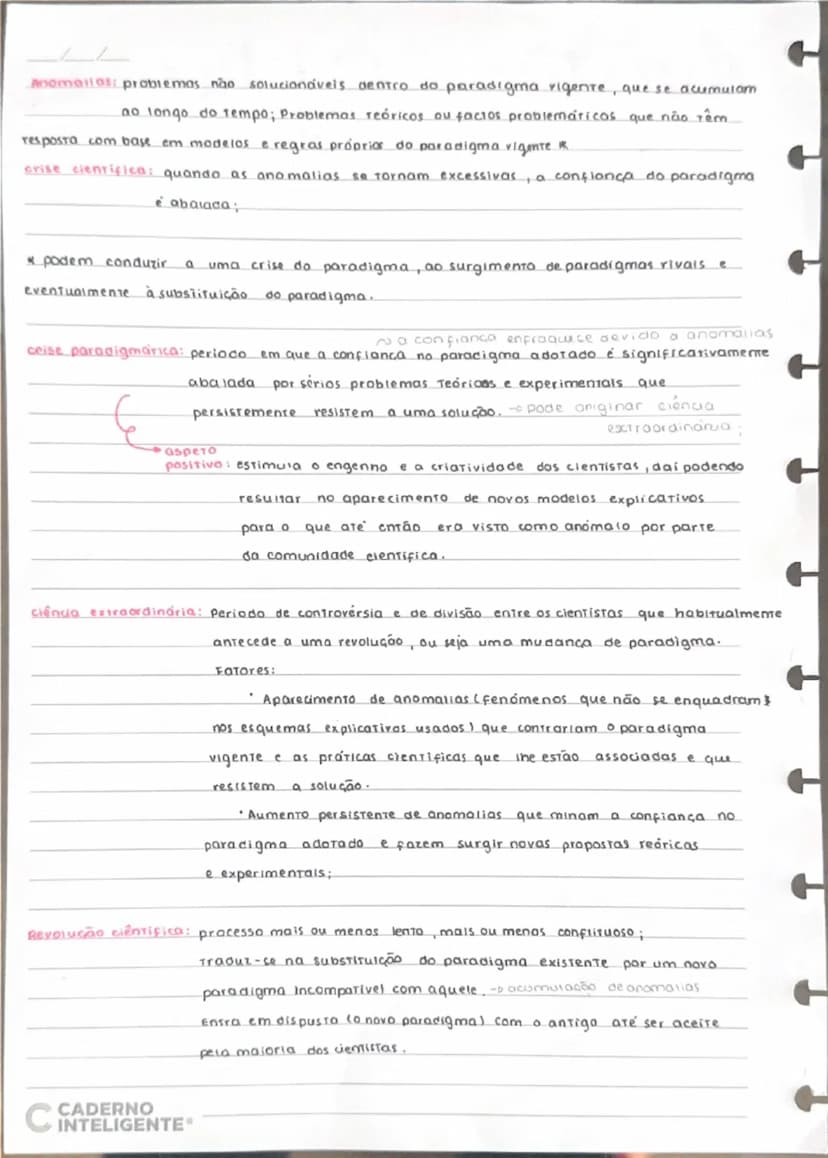 __/__/__
Anomalias: problemas não solucionáveis dentro do paradigma vigente, que se acumulam
ao longo do tempo; Problemas teóricos ou factos problemáticos que não têm
resposta com base em modelos e regras próprios do paradigma vigente *
crise científica: quando as anomalias se tornam excessivas, a confiança do paradigma
é abalada;
* podem conduzir a uma crise do paradigma, ao surgimento de paradigmas rivais e
eventualmente à substituição do paradigma.
~> a confiança enfraquece devido a anomalias
crise paradigmática: período em que a confiança no paradigma adotado é significativamente
abalada por sérios problemas teóricos e experimentais que
persistemente resistem a uma solução. → pode originar ciência
extraordinária;
→ aspeto
positivo: estimula o engenho e a criatividade dos cientistas, daí podendo
resultar no aparecimento de novos modelos explicativos
para o que até então era visto como anómalo por parte
da comunidade científica.
ciência extraordinária: Período de controvérsia e de divisão entre os cientistas que habitualmente
antecede a uma revolução, ou seja uma mudança de paradigma.
Fatores:
• Aparecimento de anomalias (fenómenos que não se enquadram
nos esquemas explicativos usados) que contrariam o paradigma
vigente e as práticas científicas que lhe estão associadas e que
resistem a solução.
• Aumento persistente de anomalias que minam a confiança no
paradigma adotado e fazem surgir novas propostas teóricas
e experimentais;
Revolução científica: processo mais ou menos lento, mais ou menos conflituoso;
Traduz-se na substituição do paradigma existente por um novo
paradigma incompatível com aquele. → acumulação de anomalias
Entra em disputa (o novo paradigma) com o antigo até ser aceite
pela maioria dos cientistas.
CADERNO
INTELIGENTE®